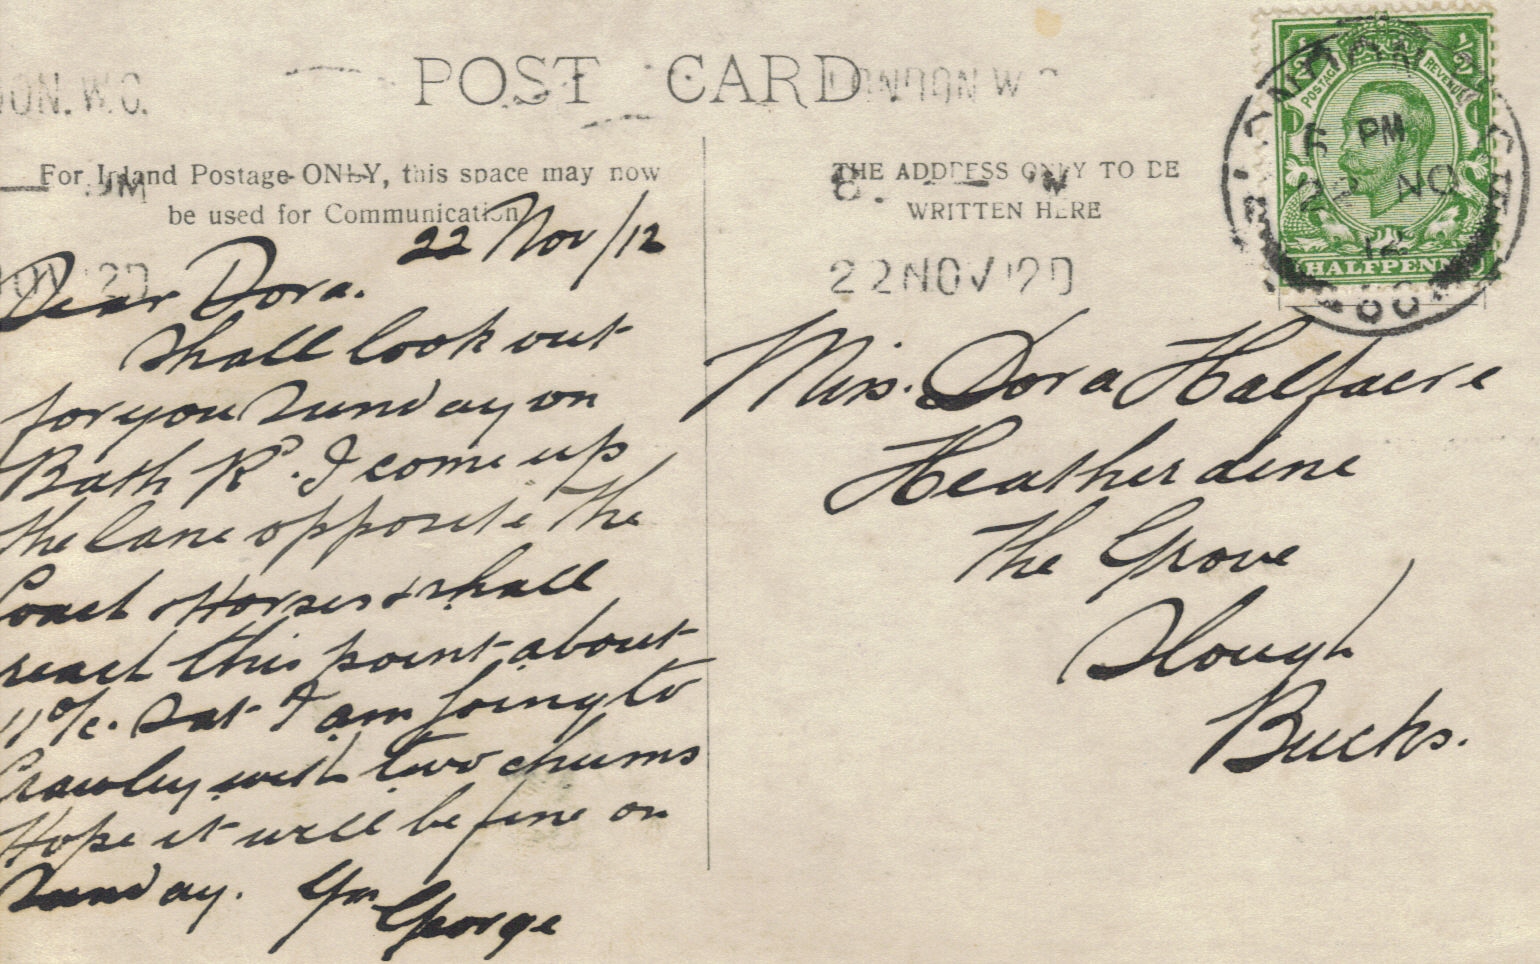 POST CARD
LONDON.W.C.
For Inland Postage ONLY, this space may now
be used for Communication
22 Nov/12
Dear Dora.
Shall look out
for you Sunday on
Bath Rd. I come up
the lane opposite the
Coach & Horses & shall
reach this point about
11 o/c. Sat I am going to
Crawley with two chums
Hope it will be fine on
Sunday. Yrs
George
THE ADDRESS ONLY TO BE
WRITTEN HERE
22NOV
Miss. Dora Halfacre
Heatherdene
The Grove
Slough
Bucks.
POSTAGE REVENUE
HALFPENNY
PM
22 NO
12